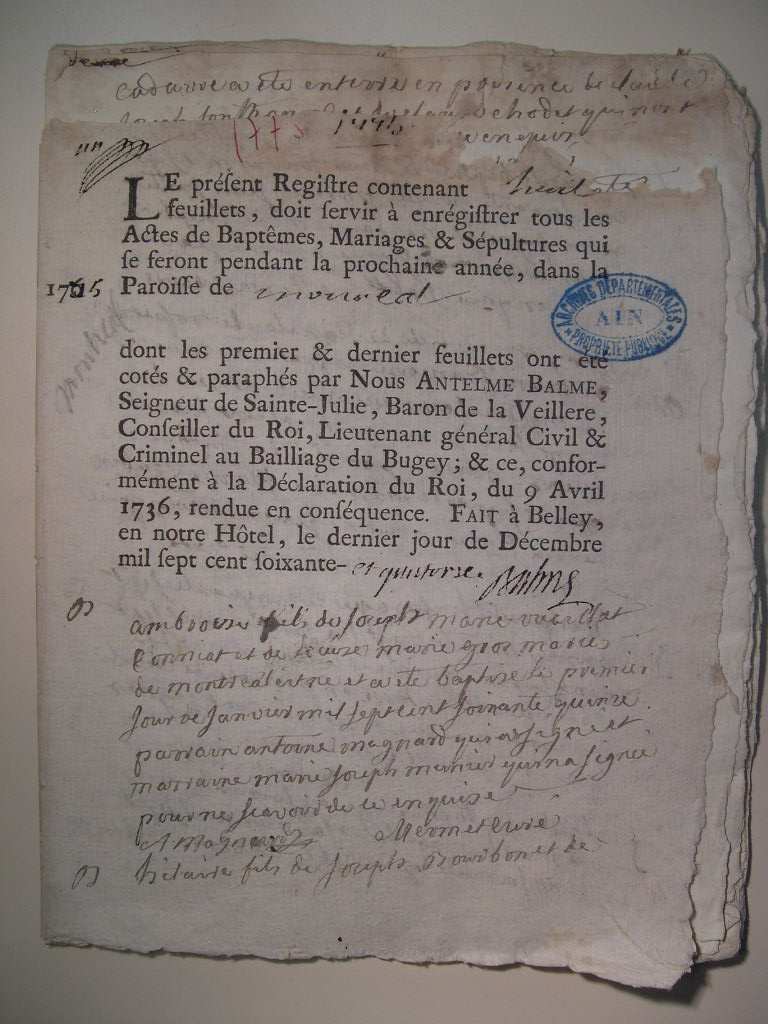 cadavre a ete enterré en presence de
1775
LE préſent Regiſtre contenant huit
feuillets, doit ſervir à enrégiſtrer tous les
Actes de Baptêmes, Mariages & Sépultures qui
ſe feront pendant la prochaine année, dans la
1775 Paroiſſe de montreal
ARCHIVES DÉPARTEMENTALES
AIN
PROPRIÉTÉ PUBLIQUE
dont les premier & dernier feuillets ont été
cotés & paraphés par Nous ANTELME BALME,
Seigneur de Sainte-Julie, Baron de la Veillere,
Conſeiller du Roi, Lieutenant général Civil &
Criminel au Bailliage du Bugey; & ce, confor-
mément à la Déclaration du Roi, du 9 Avril
1736, rendue en conſéquence. FAIT à Belley,
en notre Hôtel, le dernier jour de Décembre
mil ſept cent ſoixante- et quatorse. Balme
montreal
ambroise fils de Joseph marie vuaillat
et de marie gros mariés
de montreal est né et a ete baptise le premier
jour de Janvier mil sept cent soixante quinze
parrain antoine magnard qui a signé et
marraine marie Joseph mernier qui n'a signé
pour ne scavoir de ce enquise
A Magnard Mermet curé
hilaire fils de Joseph Bourbon et de